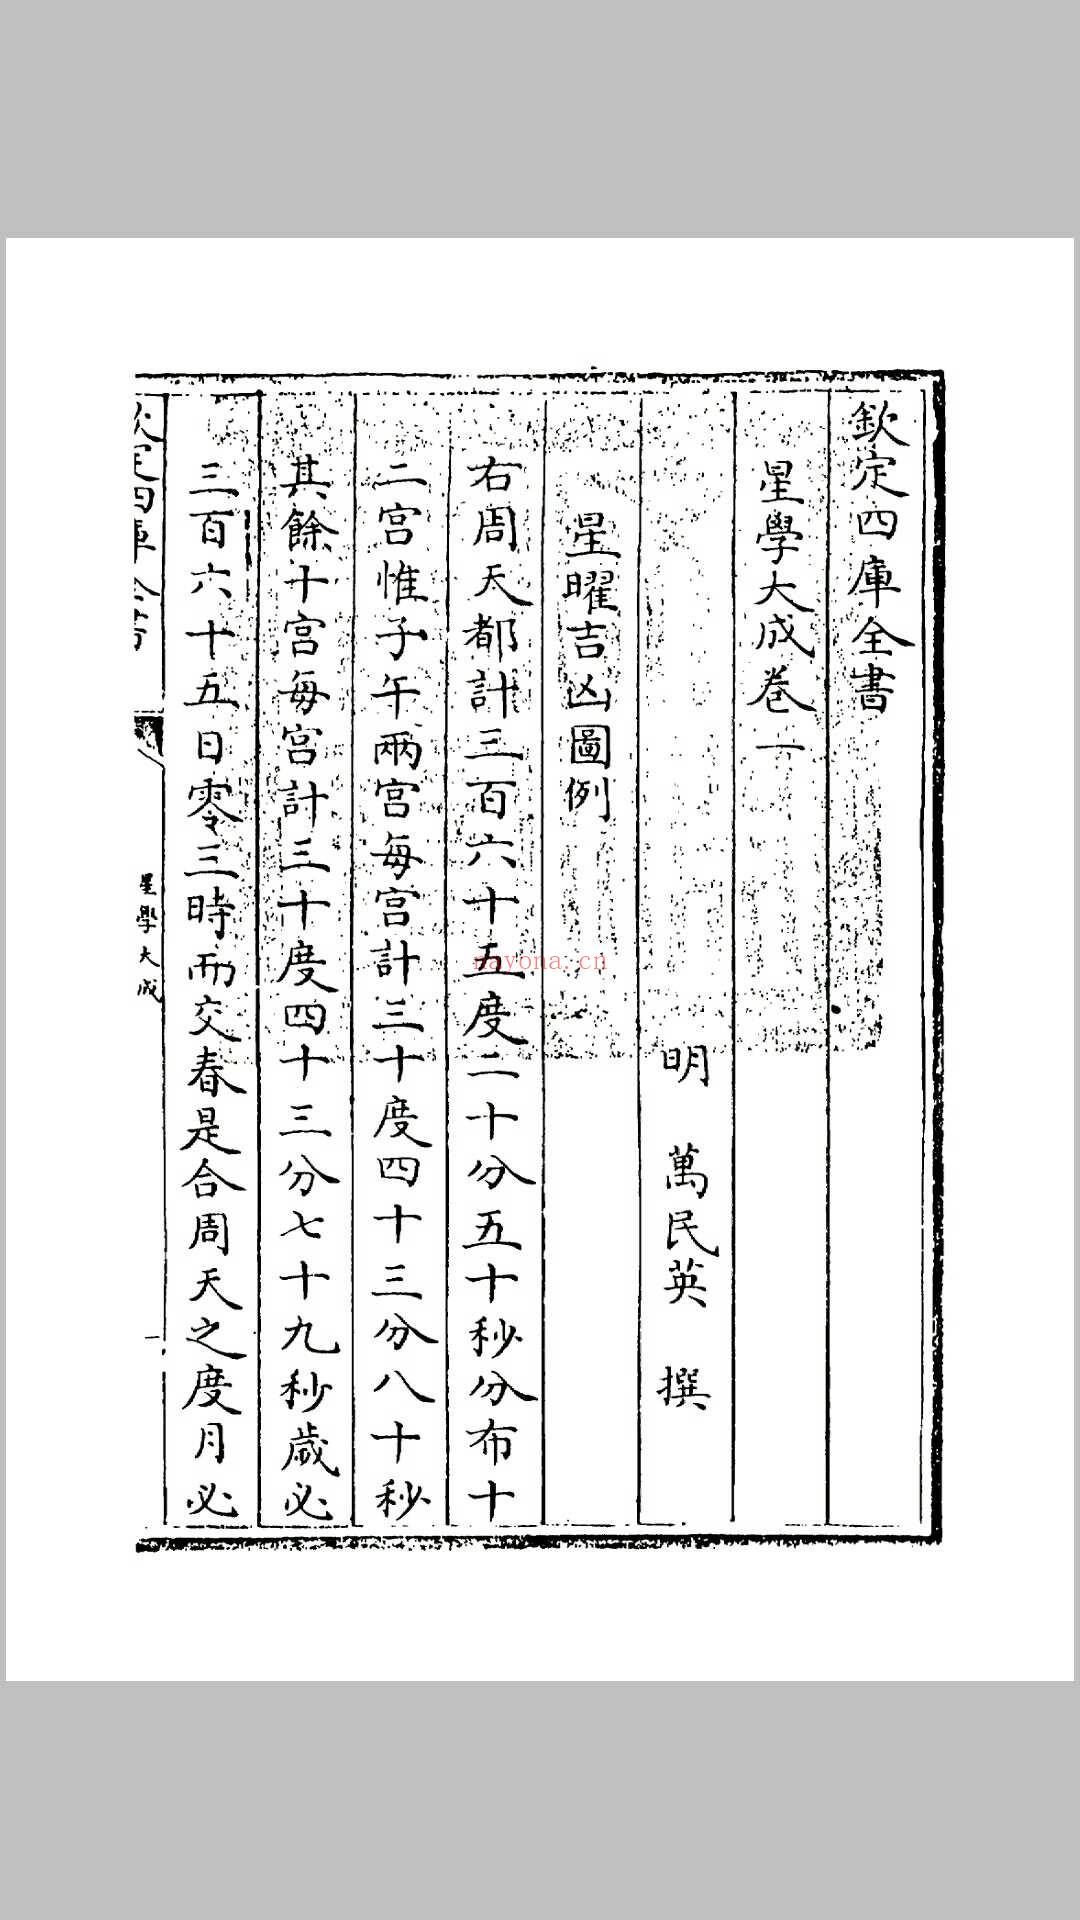 欽定四庫全書
星學大成卷一
明 萬民英 撰
星曜吉凶圖例
右周天都計三百六十五度二十分五十秒分布十
二宫惟子午兩宫每宫計三十度四十三分八十秒
其餘十宫每宫計三十度四十三分七十九秒歲必
三百六十五日零三時而交春是合周天之度月必
欽定四庫全書
星學大成
一
nayona.cn